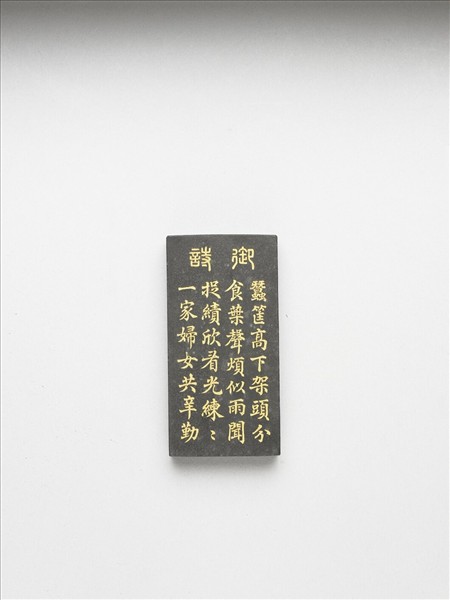 御詩
蠶筐高下架頭分
食葉聲煩似雨聞
捉績欣看光練〻
一家婦女共辛勤